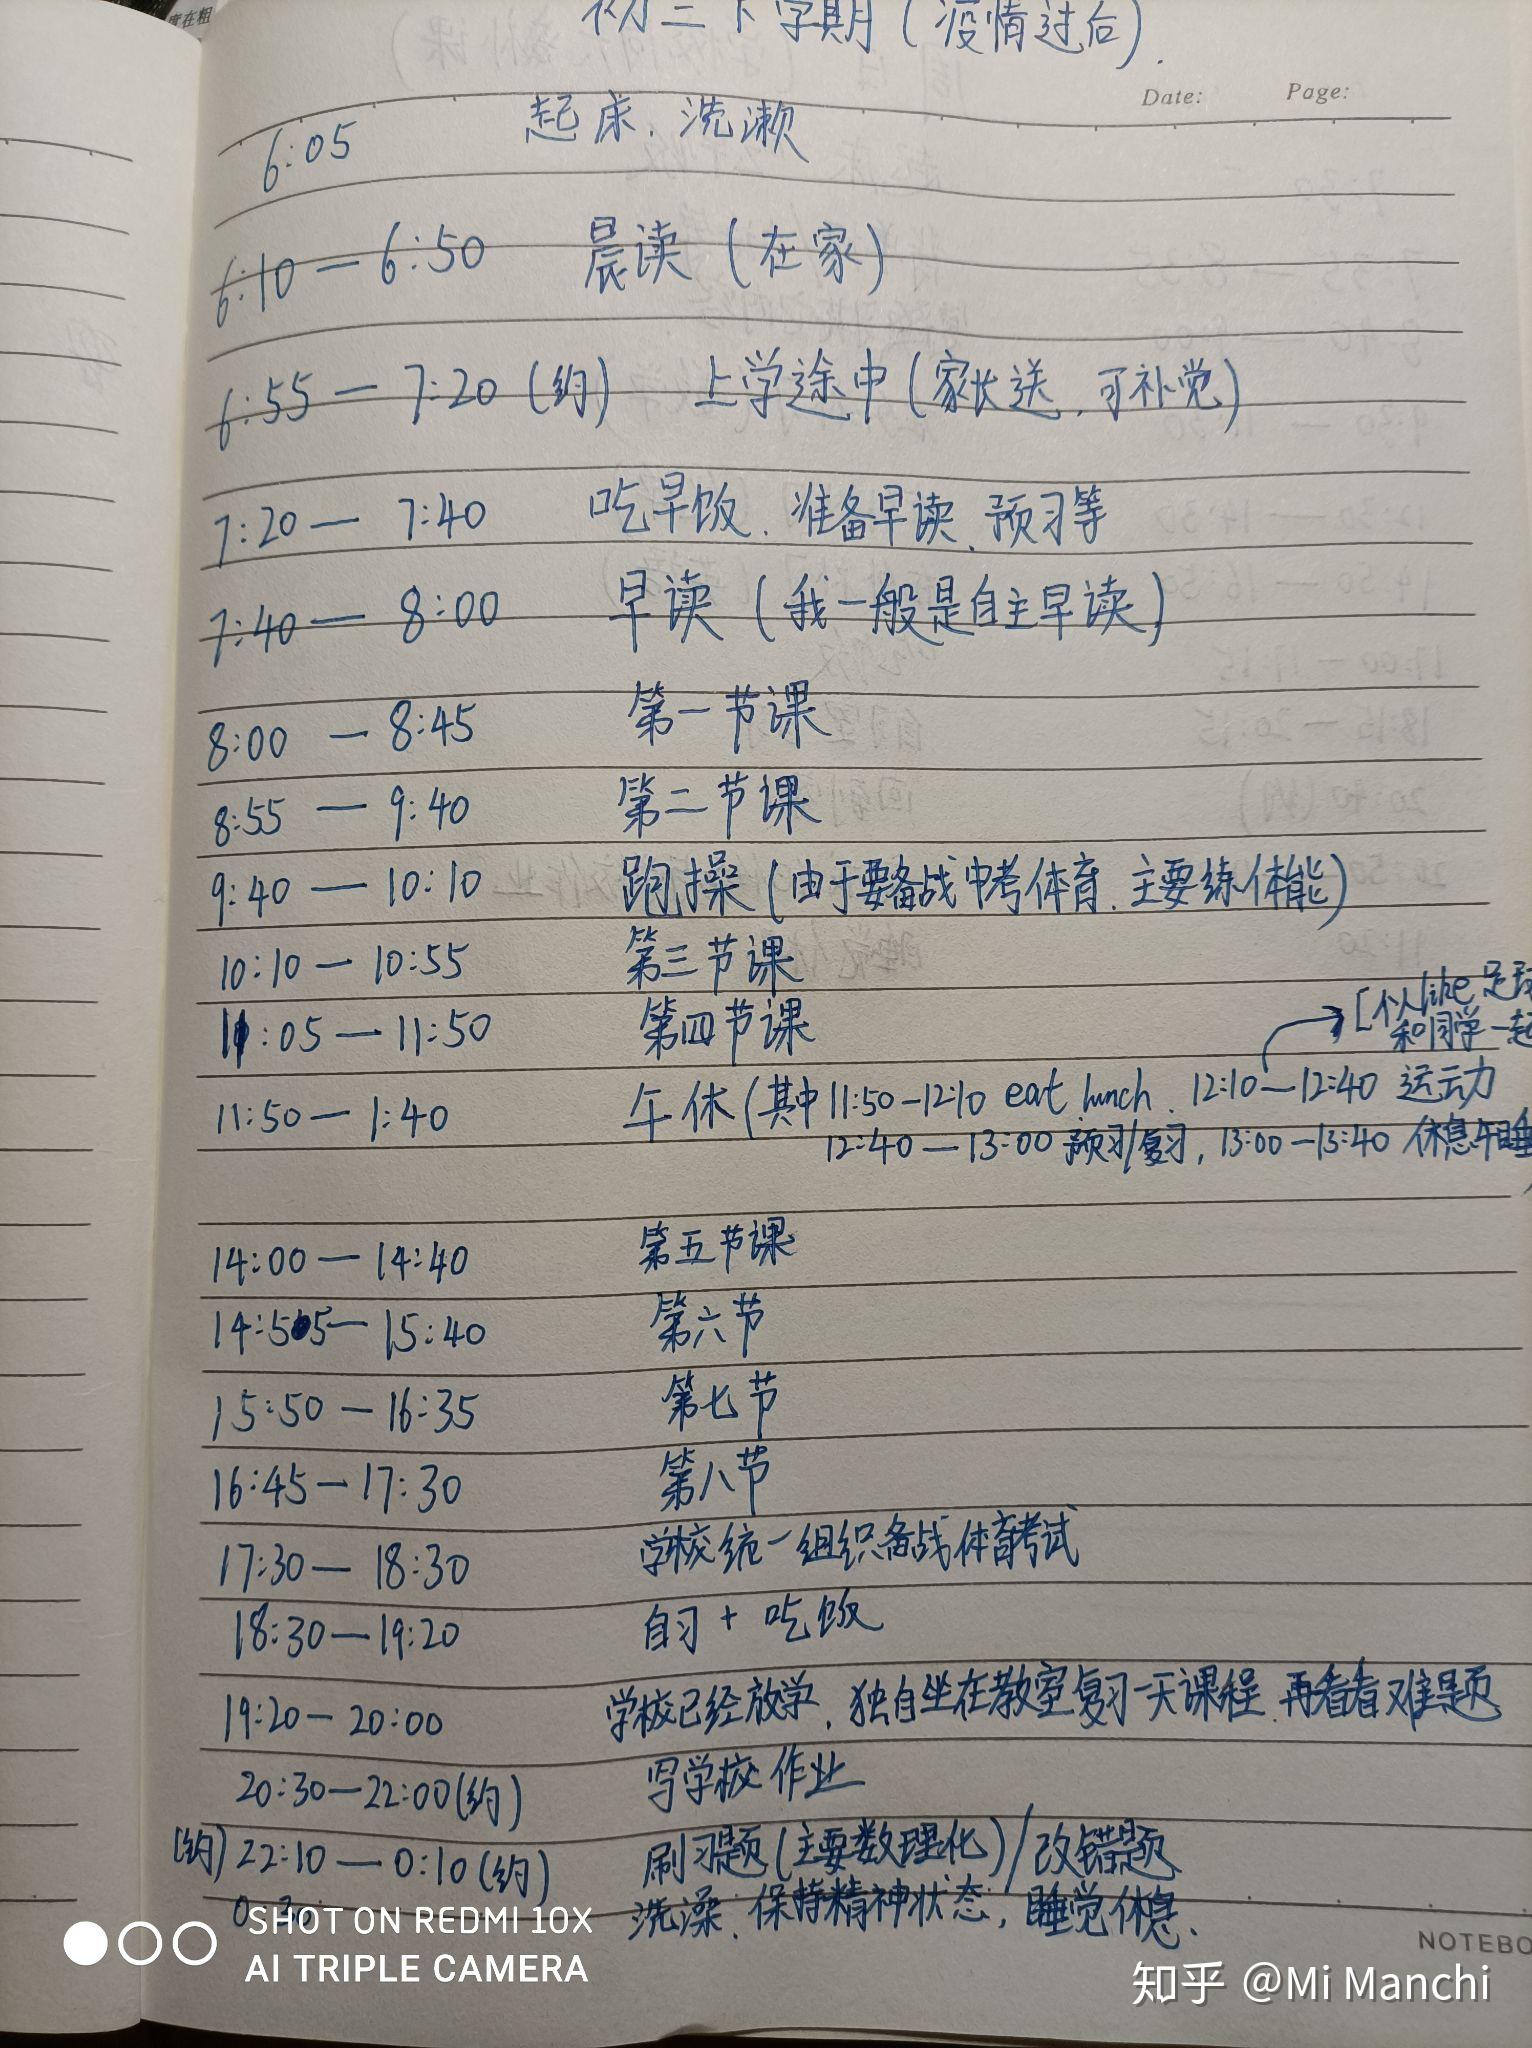 初三下学期(疫情过后).
Date: Page:
6:05 起床、洗漱
6:10 — 6:50 晨读(在家)
6:55 — 7:20(约) 上学途中(家长送、可补觉)
7:20 — 7:40 吃早饭、准备早读、预习等
7:40 — 8:00 早读(我一般是自主早读)
8:00 — 8:45 第一节课
8:55 — 9:40 第二节课
9:40 — 10:10 跑操(由于要备战中考体育、主要练体能)
10:10 — 10:55 第三节课
11:05 — 11:50 第四节课
[个人like足球
和同学一起
11:50 — 1:40 午休(其中11:50-12:10 eat lunch、12:10—12:40 运动
12:40 — 13:00 预习/复习, 13:00 — 13:40 休息午睡
14:00 — 14:40 第五节课
14:55 — 15:40 第六节
15:50 — 16:35 第七节
16:45 — 17:30 第八节
17:30 — 18:30 学校统一组织备战体育考试
18:30 — 19:20 自习 + 吃饭
19:20 — 20:00 学校已经放学, 独自坐在教室复习一天课程、再看看难题
20:30 — 22:00(约) 写学校作业
(约) 22:10 — 0:10(约) 刷习题(主要数理化)/改错题
0:30 洗澡、保持精神状态, 睡觉休息、
SHOT ON REDMI 10X
AI TRIPLE CAMERA
NOTEBO
知乎 @Mi Manchi